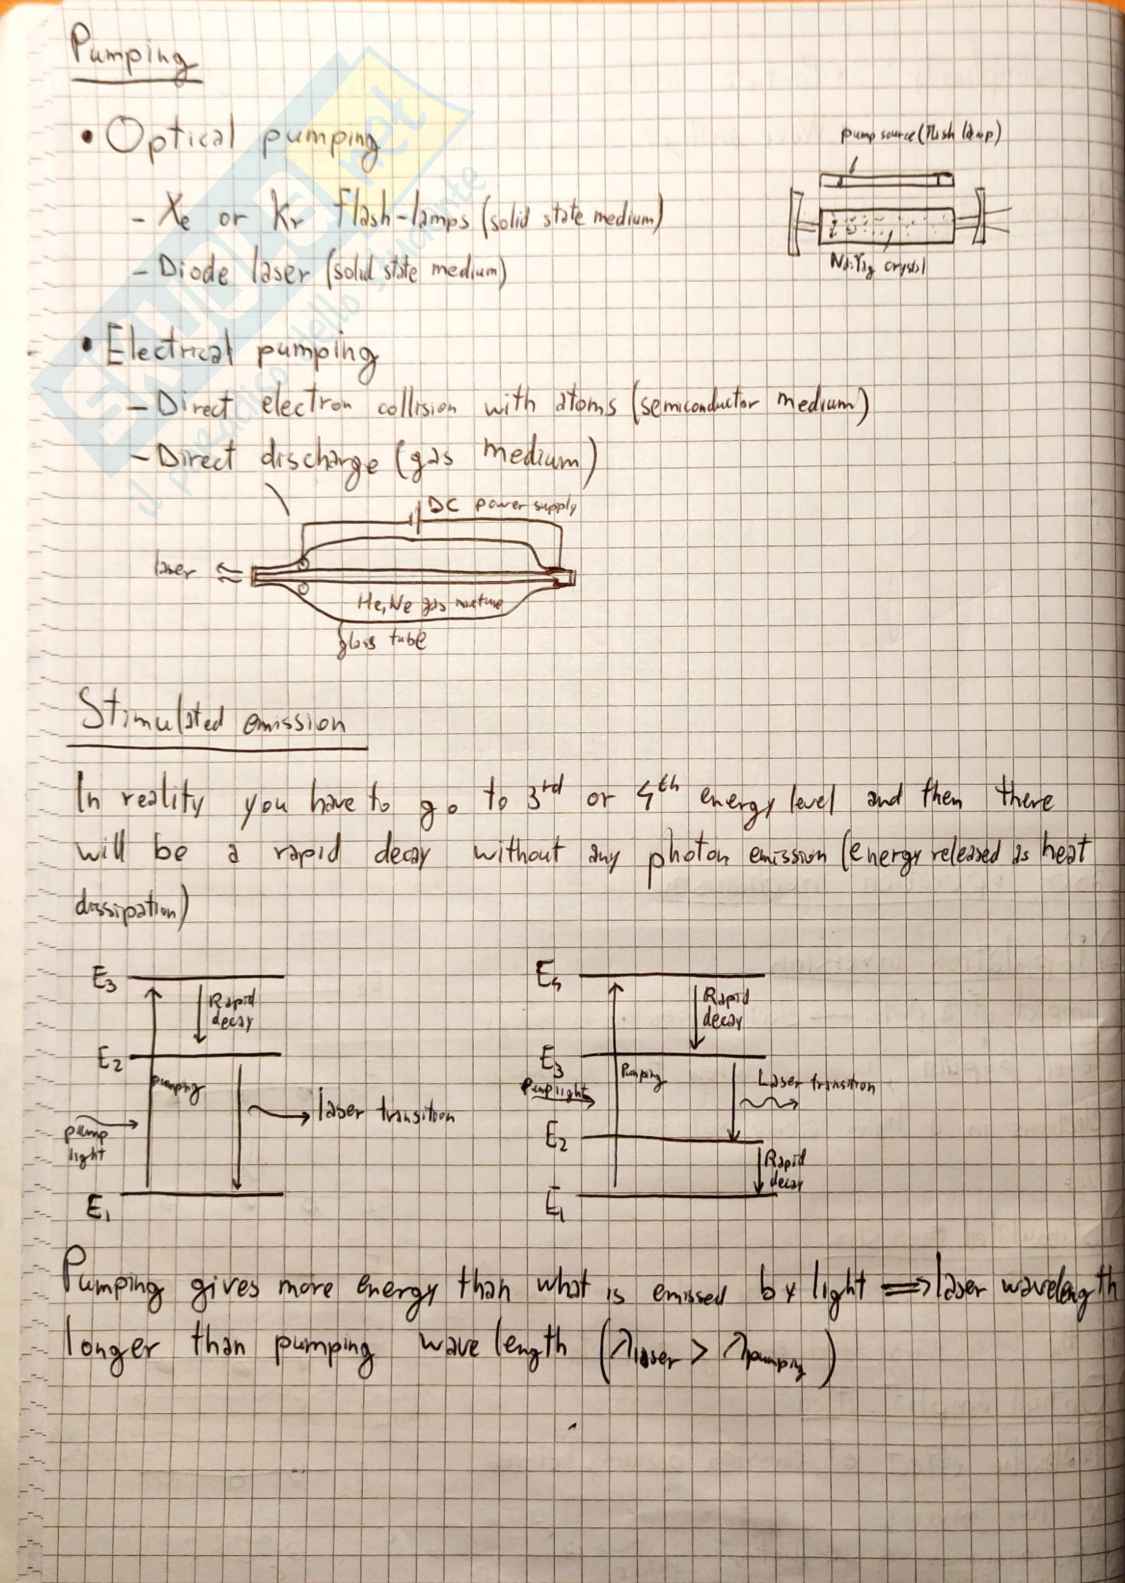 Pumping
• Optical pumping
- Xe or Kr flash-lamps (solid state medium)
- Diode laser (solid state medium)
pump source (flash lamp)
Nd:Yag crystal
• Electrical pumping
- Direct electron collision with atoms (semiconductor medium)
- Direct discharge (gas medium)
DC power supply
laser
He, Ne gas mixture
glass tube
Stimulated emission
In reality you have to go to 3rd or 4th energy level and then there
will be a rapid decay without any photon emission (energy released as heat
dissipation)
E3
Rapid
decay
E2
pumping
laser transition
pump
light
E1
E4
Rapid
decay
E3
Pumping
Pump light
Laser transition
E2
Rapid
decay
E1
Pumping gives more energy than what is emissed by light ⟹ laser wavelength
longer than pumping wave length (λlaser > λpumping)
SKUPLE net
il paradiso dello studente